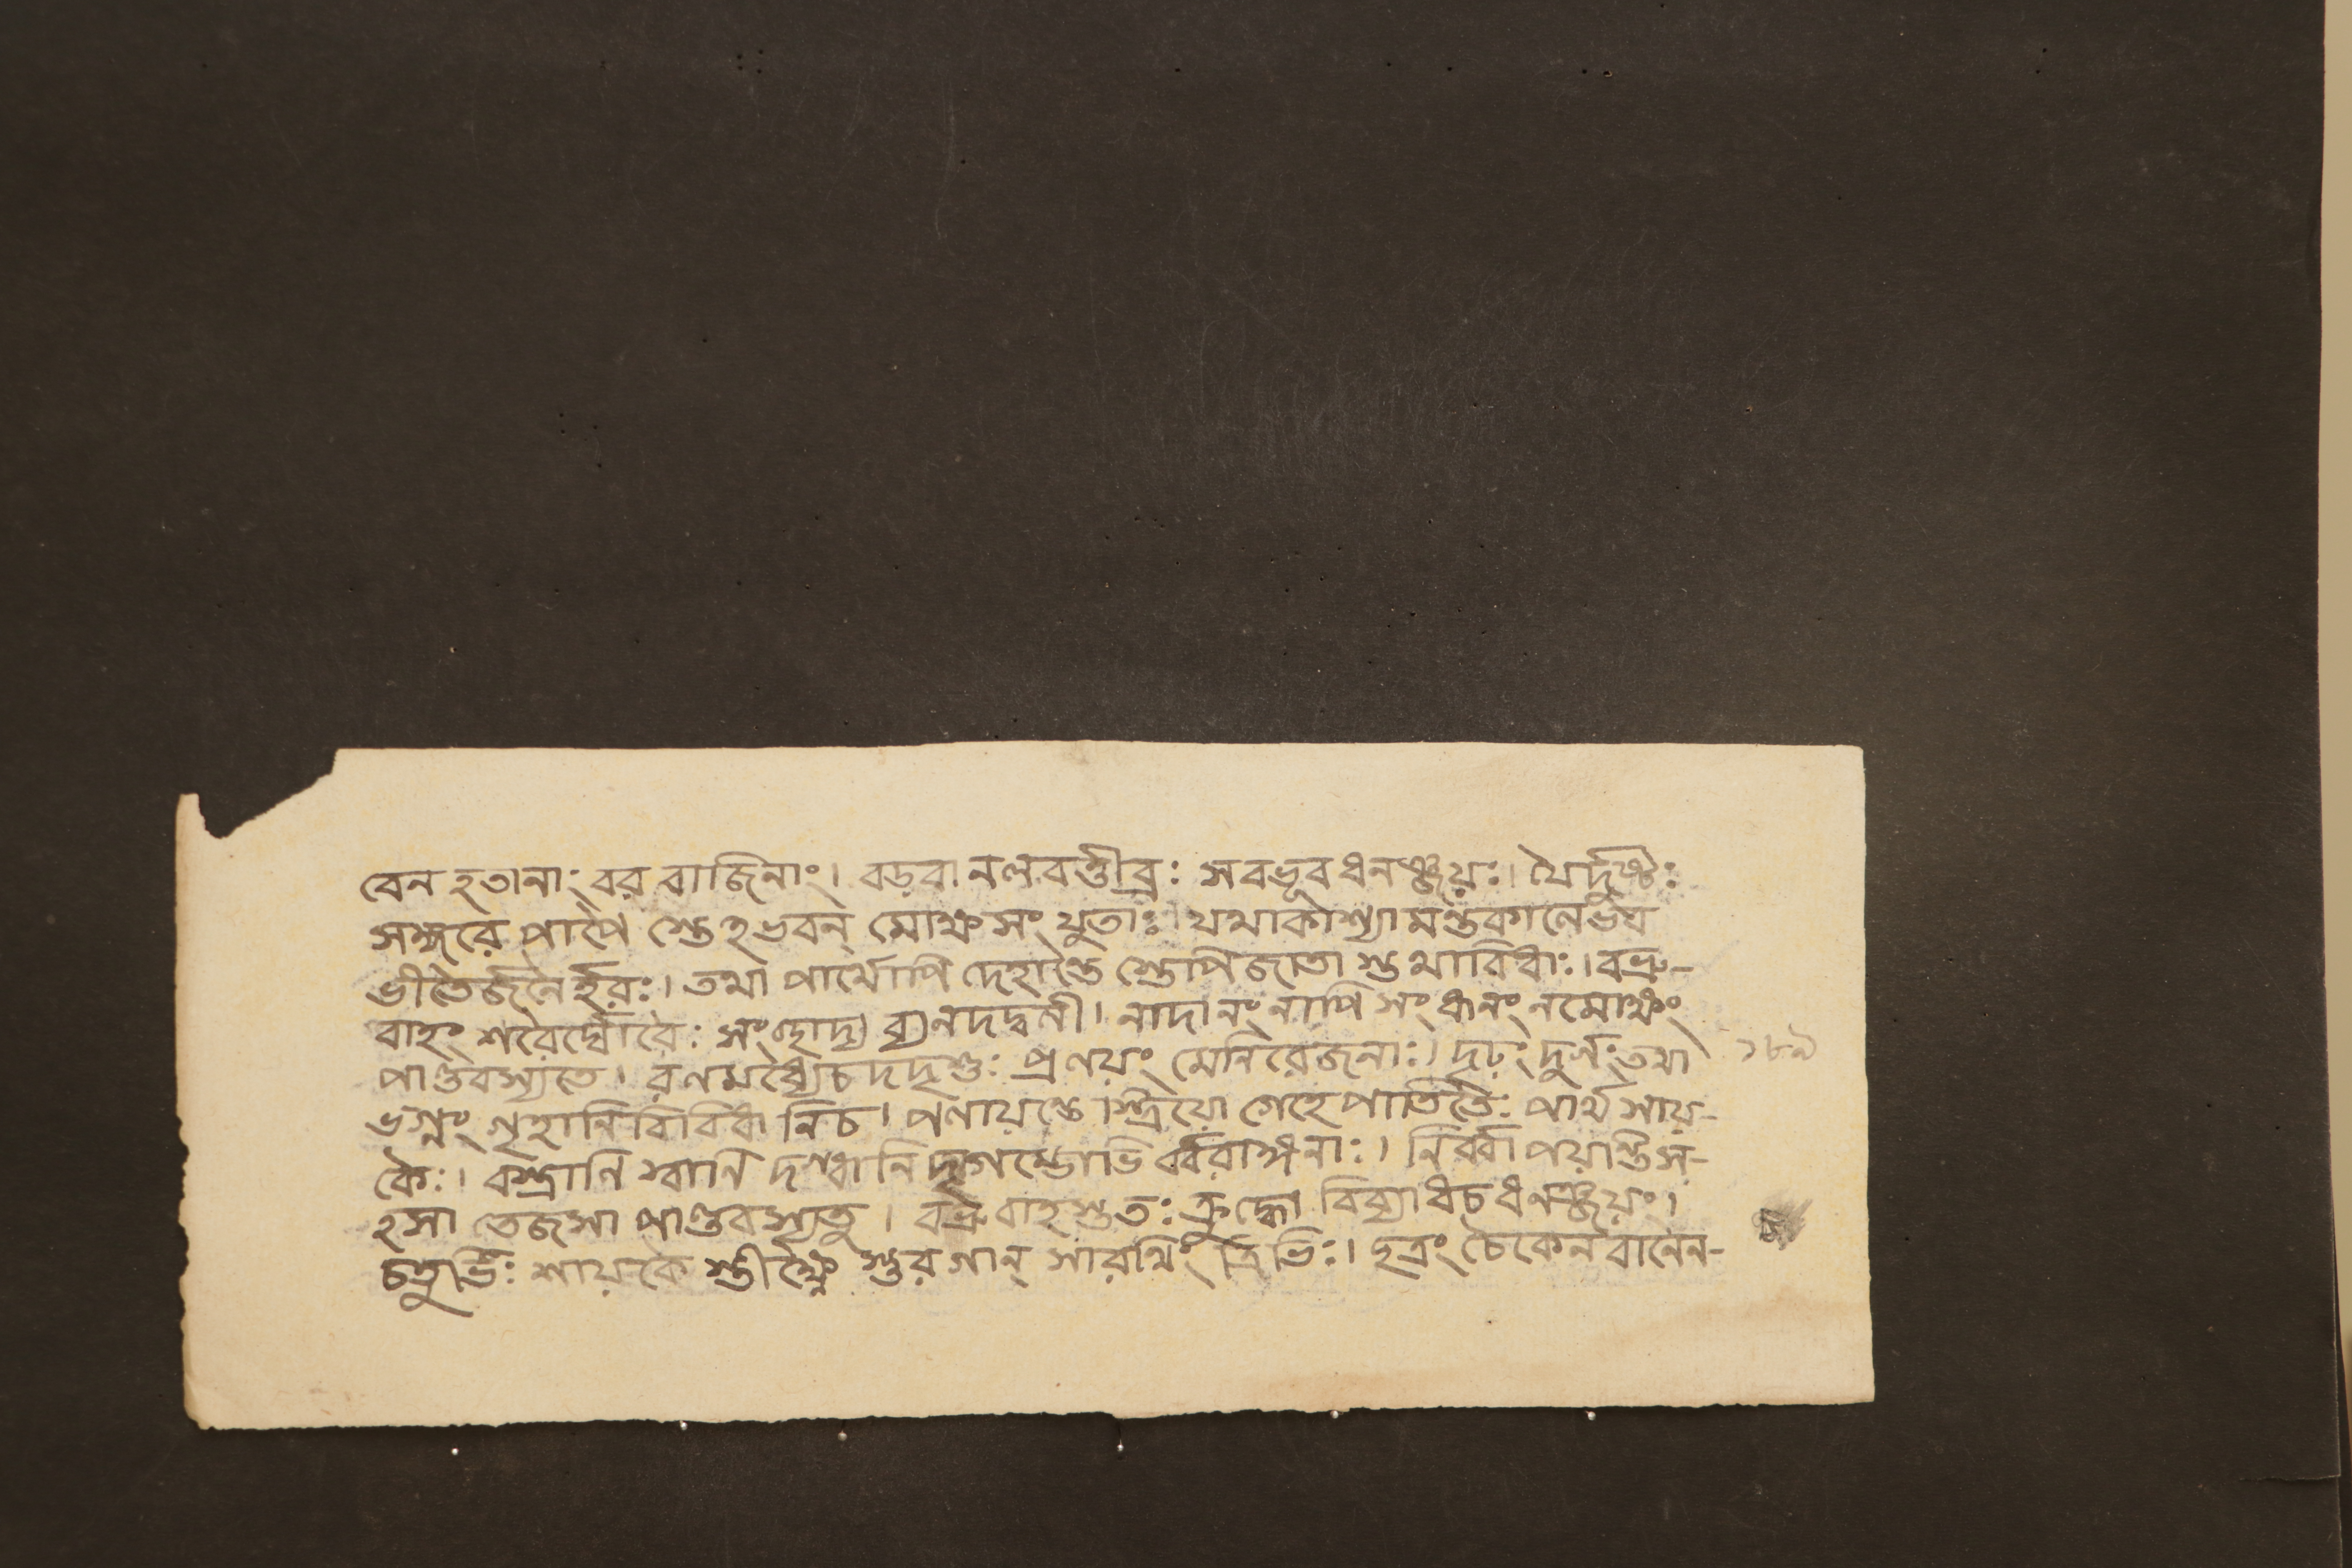 বেন হতানাং বর বাজিনাং। বড়বানলবত্তীব্রঃ সবভূব ধনঞ্জয়ঃ। যৈর্দৃষ্টঃ
সঙ্গরে পাপৈ স্তেহভবন্ মোক্ষ সংযুতাঃ। যথাকাশ্যামন্তকালেভব
ভীতৈর্জনৈর্হরঃ। তথা পার্থোপি দেহান্তৈ স্তেপি জাতা স্তথাবিধাঃ। বভ্রু-
বাহং শরৈর্ঘোরৈঃ সংছাদ্য ব্যনদদ্বলী। নাদানং নাপি সংধানং নমোক্ষং
পাণ্ডবস্যতে। রণমধ্যেচ দদৃশুঃ প্রণয়ং মেনিরেজনাঃ। দৃঢ়ং দুর্গং তথা
ভগ্নং গৃহানি বিবিধা নিচ। পলায়ন্তে স্ত্রিয়ো গেহে পাতিতৈঃ পার্থ সায়-
কৈঃ। বস্ত্রানি স্বানি দগ্ধানি দৃগম্ভোভি র্বরাঙ্গনাঃ। নির্ব্বাপয়ন্তি স-
হসা তেজসা পাণ্ডবস্যতু। বভ্রুবাহ স্ততঃ ক্রুদ্ধো বিব্যাধচ ধনঞ্জয়ং।
চতুর্ভিঃ শায়কৈ স্তীক্ষ্ণৈ স্তুরগান্ সারথিং ত্রিভিঃ। ছত্রং চৈকেন বানেন-
১৮৯